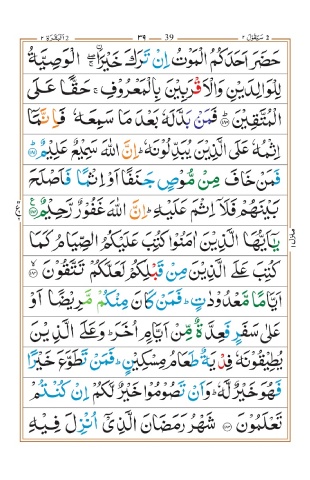 البقرة ٢ ٣٩ 39 سيقول ٢
حَضَرَ اَحَدَكُمُ الْمَوْتُ اِنْ تَرَكَ خَيْرَا ۖۚ اۨلْوَصِيَّةُ
لِلْوَالِدَيْنِ وَالْاَقْرَبِيْنَ بِالْمَعْرُوْفِ ۚ حَقًّا عَلَى
الْمُتَّقِيْنَ ؕ‏﴿۱۸۰﴾ فَمَنْۢ بَدَّلَهٗ بَعْدَ مَا سَمِعَهٗ فَاِنَّمَآ
اِثْمُهٗ عَلَى الَّذِيْنَ يُبَدِّلُوْنَهٗ ؕ اِنَّ اللّٰهَ سَمِيْعٌ عَلِيْمٌ ؕ‏﴿۱۸۱﴾
فَمَنْ خَافَ مِنْ مُّوْصٍ جَنَفًا اَوْ اِثْمًا فَاَصْلَحَ
بَيْنَهُمْ فَلَاۤ اِثْمَ عَلَيْهِ ؕ اِنَّ اللّٰهَ غَفُوْرٌ رَّحِيْمٌ ﴿۱۸۲﴾
يٰٓـاَيُّهَا الَّذِيْنَ اٰمَنُوْا كُتِبَ عَلَيْکُمُ الصِّيَامُ کَمَا
كُتِبَ عَلَى الَّذِيْنَ مِنْ قَبْلِکُمْ لَعَلَّكُمْ تَتَّقُوْنَ ۙ‏﴿۱۸۳﴾
اَيَّامًا مَّعْدُوْدٰتٍ ؕ فَمَنْ كَانَ مِنْكُمْ مَّرِيْضًا اَوْ
عَلٰى سَفَرٍ فَعِدَّةٌ مِّنْ اَيَّامٍ اُخَرَ ؕ وَعَلَى الَّذِيْنَ
يُطِيْقُوْنَهٗ فِدْيَةٌ طَعَامُ مِسْكِيْنٍ ؕ فَمَنْ تَطَوَّعَ خَيْرًا
فَهُوَ خَيْرٌ لَّهٗ ؕ وَاَنْ تَصُوْمُوْا خَيْرٌ لَّـکُمْ اِنْ كُنْتُمْ
تَعْلَمُوْنَ ‏﴿۱۸۴﴾ شَهْرُ رَمَضَانَ الَّذِىْٓ اُنْزِلَ فِيْهِ